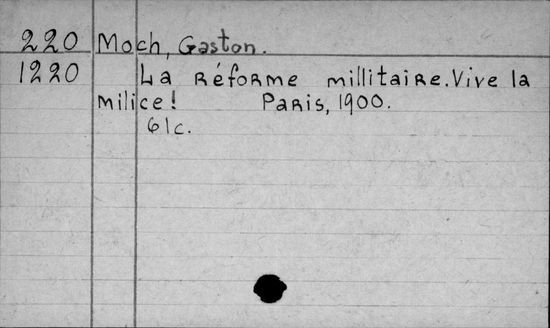 220 Moch, Gaston.
1220 La Réforme millitaire. Vive la
milice! Paris, 1900.
61c.